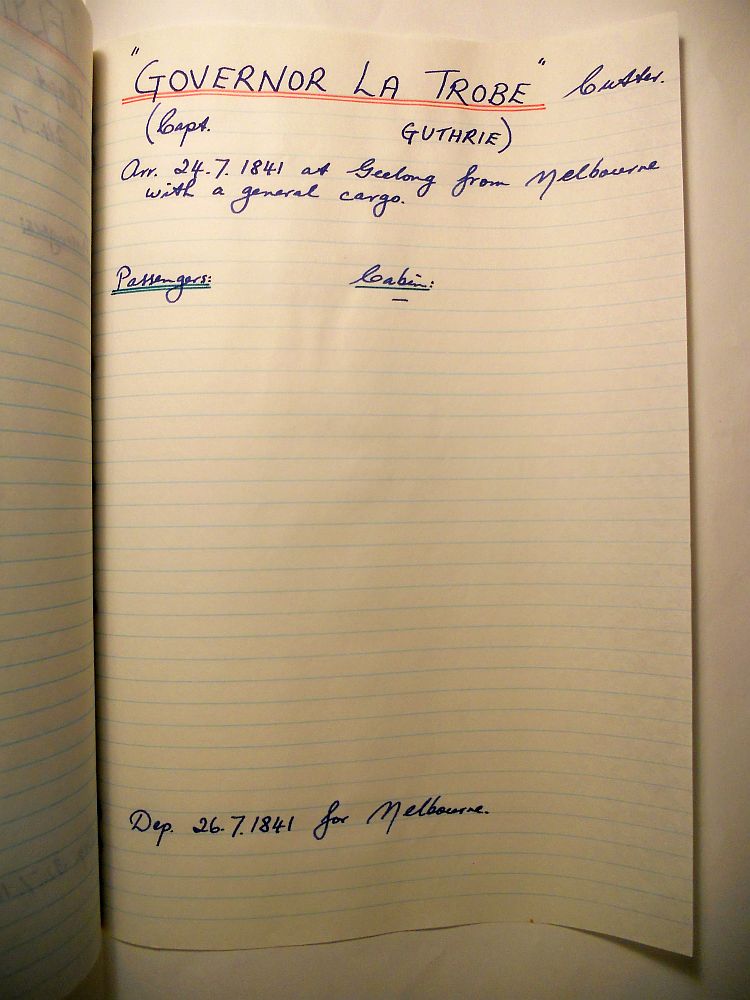 "GOVERNOR LA TROBE" Cutter.
(Capt. GUTHRIE)
Arr. 24.7.1841 at Geelong from Melbourne
with a general cargo.
Passengers: Cabin:
—
Dep. 26.7.1841 for Melbourne.